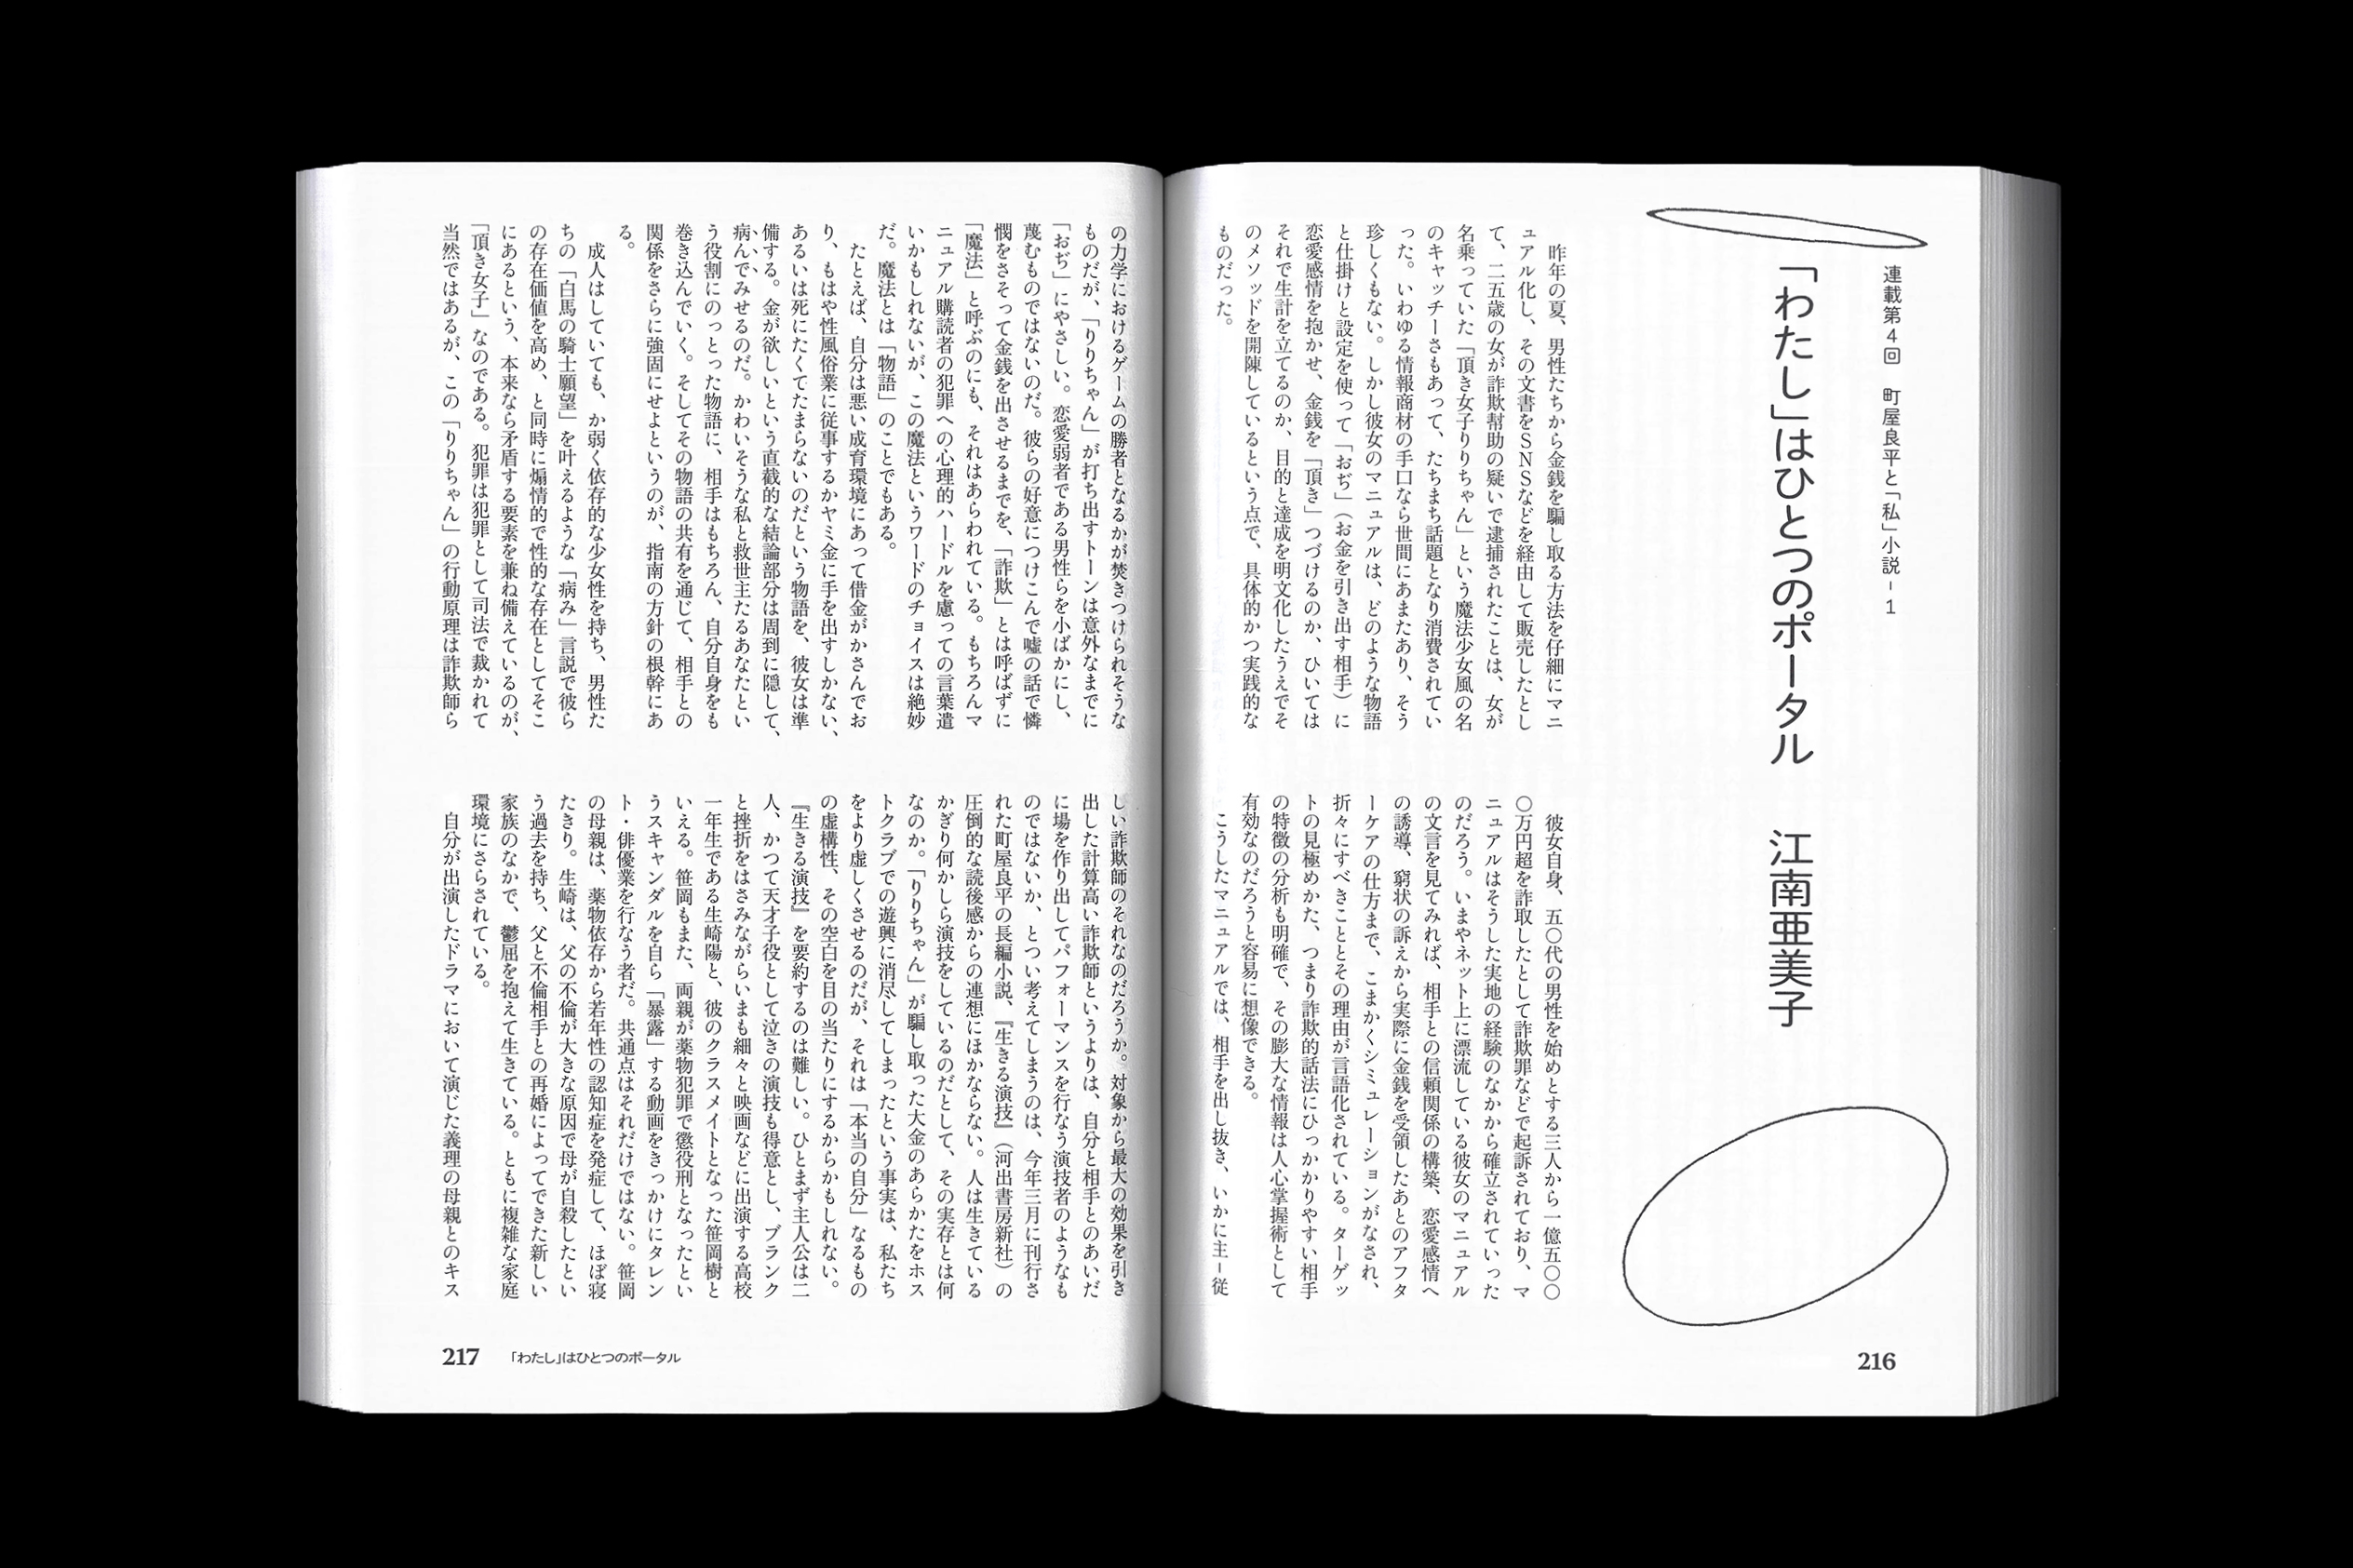 連載第4回　町屋良平と「私」小説－1
「わたし」はひとつのポータル　江南亜美子
昨年の夏、男性たちから金銭を騙し取る方法を仔細にマニ
ュアル化し、その文書をSNSなどを経由して販売したとし
て、二五歳の女が詐欺幇助の疑いで逮捕されたことは、女が
名乗っていた「頂き女子りりちゃん」という魔法少女風の名
のキャッチーさもあって、たちまち話題となり消費されてい
った。いわゆる情報商材の手口なら世間にあまたあり、そう
珍しくもない。しかし彼女のマニュアルは、どのような物語
と仕掛けと設定を使って「おぢ」（お金を引き出す相手）に
恋愛感情を抱かせ、金銭を「頂き」つづけるのか、ひいては
それで生計を立てるのか、目的と達成を明文化したうえでそ
のメソッドを開陳しているという点で、具体的かつ実践的な
ものだった。
彼女自身、五〇代の男性を始めとする三人から一億五〇〇
〇万円超を詐取したとして詐欺罪などで起訴されており、マ
ニュアルはそうした実地の経験のなかから確立されていった
のだろう。いまやネット上に漂流している彼女のマニュアル
の文言を見てみれば、相手との信頼関係の構築、恋愛感情へ
の誘導、窮状の訴えから実際に金銭を受領したあとのアフタ
ーケアの仕方まで、こまかくシミュレーションがなされ、
折々にすべきこととその理由が言語化されている。ターゲッ
トの見極めかた、つまり詐欺的話法にひっかかりやすい相手
の特徴の分析も明確で、その膨大な情報は人心掌握術として
有効なのだろうと容易に想像できる。
こうしたマニュアルでは、相手を出し抜き、いかに主－従
216
の力学におけるゲームの勝者となるかが焚きつけられそうな
ものだが、「りりちゃん」が打ち出すトーンは意外なまでに
「おぢ」にやさしい。恋愛弱者である男性らを小ばかにし、
蔑むものではないのだ。彼らの好意につけこんで嘘の話で憐
憫をさそって金銭を出させるまでを、「詐欺」とは呼ばずに
「魔法」と呼ぶのにも、それはあらわれている。もちろんマ
ニュアル購読者の犯罪への心理的ハードルを慮っての言葉遣
いかもしれないが、この魔法というワードのチョイスは絶妙
だ。魔法とは「物語」のことでもある。
たとえば、自分は悪い成育環境にあって借金がかさんでお
り、もはや性風俗業に従事するかヤミ金に手を出すしかない、
あるいは死にたくてたまらないのだという物語を、彼女は準
備する。金が欲しいという直截的な結論部分は周到に隠して、
病んでみせるのだ。かわいそうな私と救世主たるあなたとい
う役割にのっとった物語に、相手はもちろん、自分自身をも
巻き込んでいく。そしてその物語の共有を通じて、相手との
関係をさらに強固にせよというのが、指南の方針の根幹にあ
る。
成人はしていても、か弱く依存的な少女性を持ち、男性た
ちの「白馬の騎士願望」を叶えるような「病み」言説で彼ら
の存在価値を高め、と同時に煽情的で性的な存在としてそこ
にあるという、本来なら矛盾する要素を兼ね備えているのが、
「頂き女子」なのである。犯罪は犯罪として司法で裁かれて
当然ではあるが、この「りりちゃん」の行動原理は詐欺師ら
しい詐欺師のそれなのだろうか。対象から最大の効果を引き
出した計算高い詐欺師というよりは、自分と相手とのあいだ
に場を作り出してパフォーマンスを行なう演技者のようなも
のではないか、とつい考えてしまうのは、今年三月に刊行さ
れた町屋良平の長編小説、『生きる演技』（河出書房新社）の
圧倒的な読後感からの連想にほかならない。人は生きている
かぎり何かしら演技をしているのだとして、その実存とは何
なのか。「りりちゃん」が騙し取った大金のあらかたをホス
トクラブでの遊興に消尽してしまったという事実は、私たち
をより虚しくさせるのだが、それは「本当の自分」なるもの
の虚構性、その空白を目の当たりにするからかもしれない。
『生きる演技』を要約するのは難しい。ひとまず主人公は二
人、かつて天才子役として泣きの演技も得意とし、ブランク
と挫折をはさみながらいまも細々と映画などに出演する高校
一年生である生崎陽と、彼のクラスメイトとなった笹岡樹と
いえる。笹岡もまた、両親が薬物犯罪で懲役刑となったとい
うスキャンダルを自ら「暴露」する動画をきっかけにタレン
ト・俳優業を行なう者だ。共通点はそれだけではない。笹岡
の母親は、薬物依存から若年性の認知症を発症して、ほぼ寝
たきり。生崎は、父の不倫が大きな原因で母が自殺したとい
う過去を持ち、父と不倫相手との再婚によってできた新しい
家族のなかで、鬱屈を抱えて生きている。ともに複雑な家庭
環境にさらされている。
自分が出演したドラマにおいて演じた義理の母親とのキス
217　「わたし」はひとつのポータル